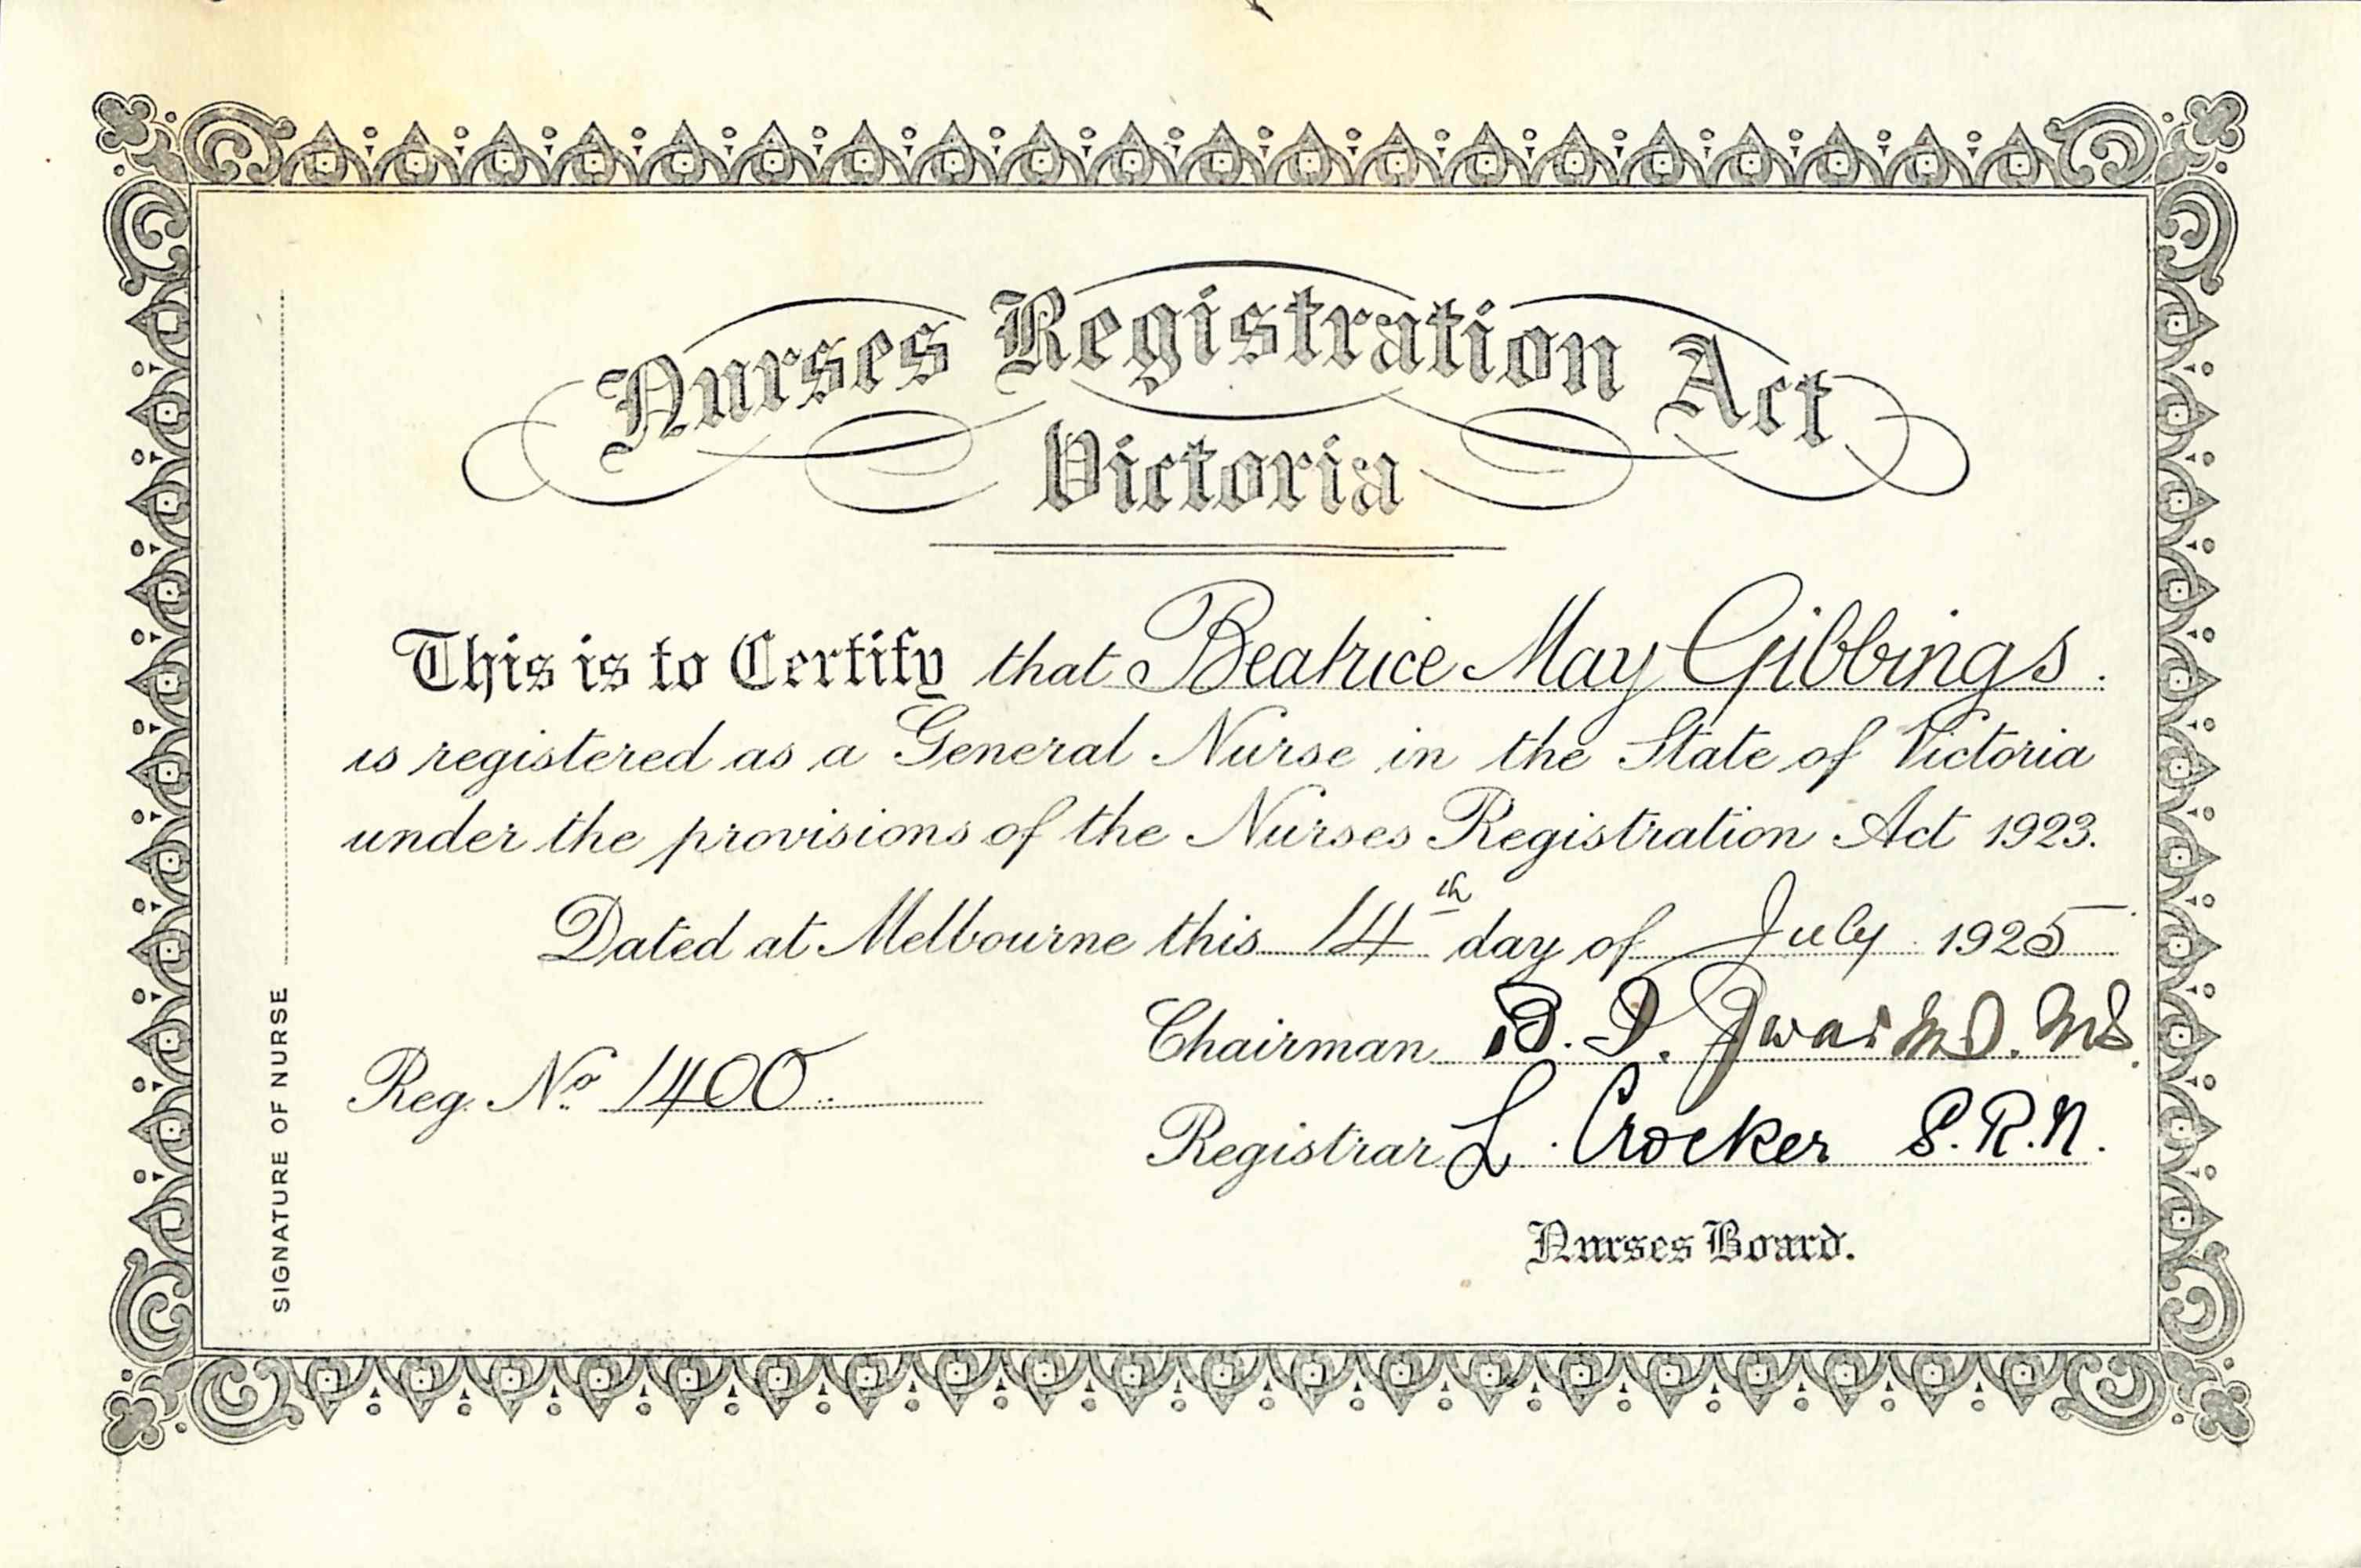 Nurses Registration Act
Victoria
This is to Certify that Beatrice May Gibbings.
is registered as a General Nurse in the State of Victoria
under the provisions of the Nurses Registration Act 1923.
Dated at Melbourne this 14th day of July 1925
Chairman B. T. Zwar M.D. M.S.
Reg. No. 1400
Registrar L. Crocker S.R.N.
Nurses Board.
SIGNATURE OF NURSE